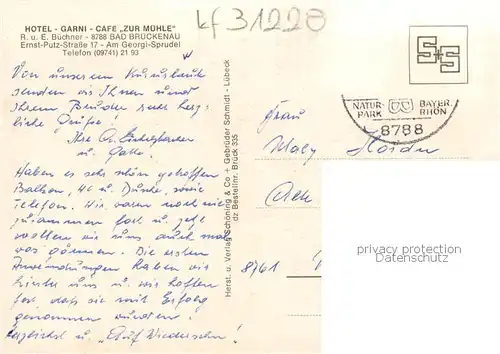 HOTEL - GARNI - CAFE „ZUR MÜHLE"
R. u. E. Büchner - 8788 BAD BRÜCKENAU
Ernst-Putz-Straße 17 - Am Georgi-Sprudel
Telefon (09741) 21 93
kf 31220
Von unserem Kururlaub
senden wir Ihnen und
Ihrem Bruder recht herz-
liche Grüße!
Ihre
u. Gatte.
Haben es sehr schön getroffen
Balkon, WC u. Dusche, sowie
Telefon. Wir waren noch nie
zusammen fort u. jetzt
wollten wir uns auch mal
was gönnen. Die ersten
Anwendungen haben wir
hinter uns u. wir hoffen
fest, daß sie mit Erfolg
genommen wurden!
Herzlichst u. „Auf Wiedersehn!
Herst. u. Verlag Schöning & Co + Gebrüder Schmidt - Lübeck
dz Bestellnr. Brück 335
S+S
NATUR-
PARK
BAYER.
RHÖN
8788
Frau
8761
privacy protection
Datenschutz